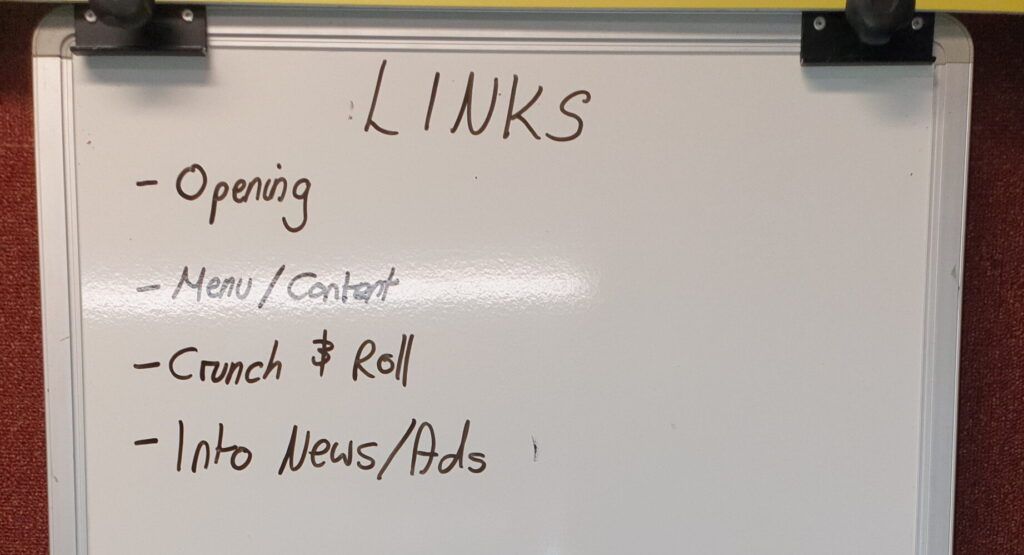 LINKS
- Opening
- Menu/Content
- Crunch & Roll
- Into News/Ads